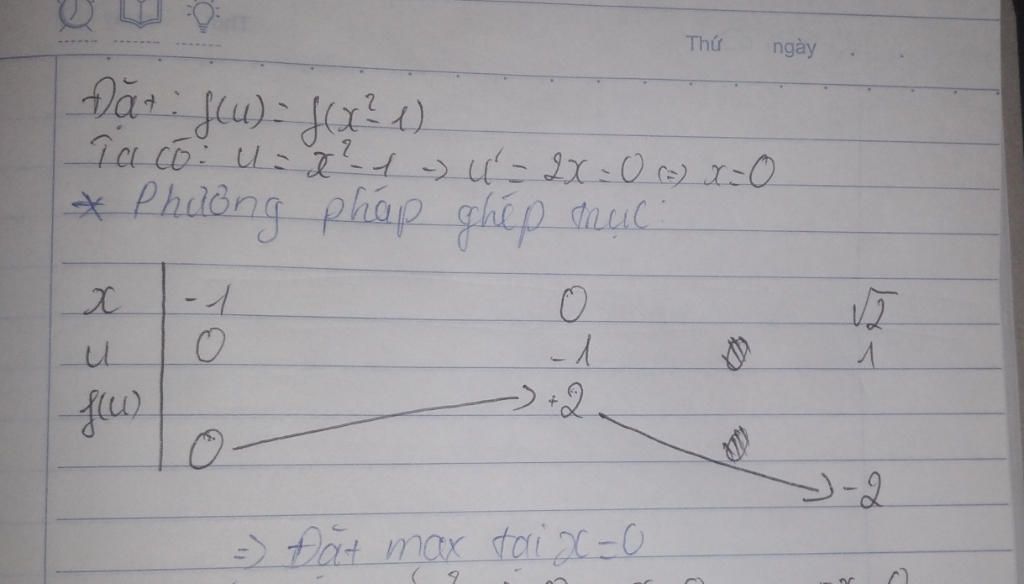 Thứ ngày . .
Đặt: f(u) = f(x²-1)
Ta có: u = x²-1 → u' = 2x = 0 ⇔ x=0
* Phương pháp ghép trục:
x -1 0 √2
u 0 -1 1
f(u) +2
0
-2
=> Đạt max tại x=0